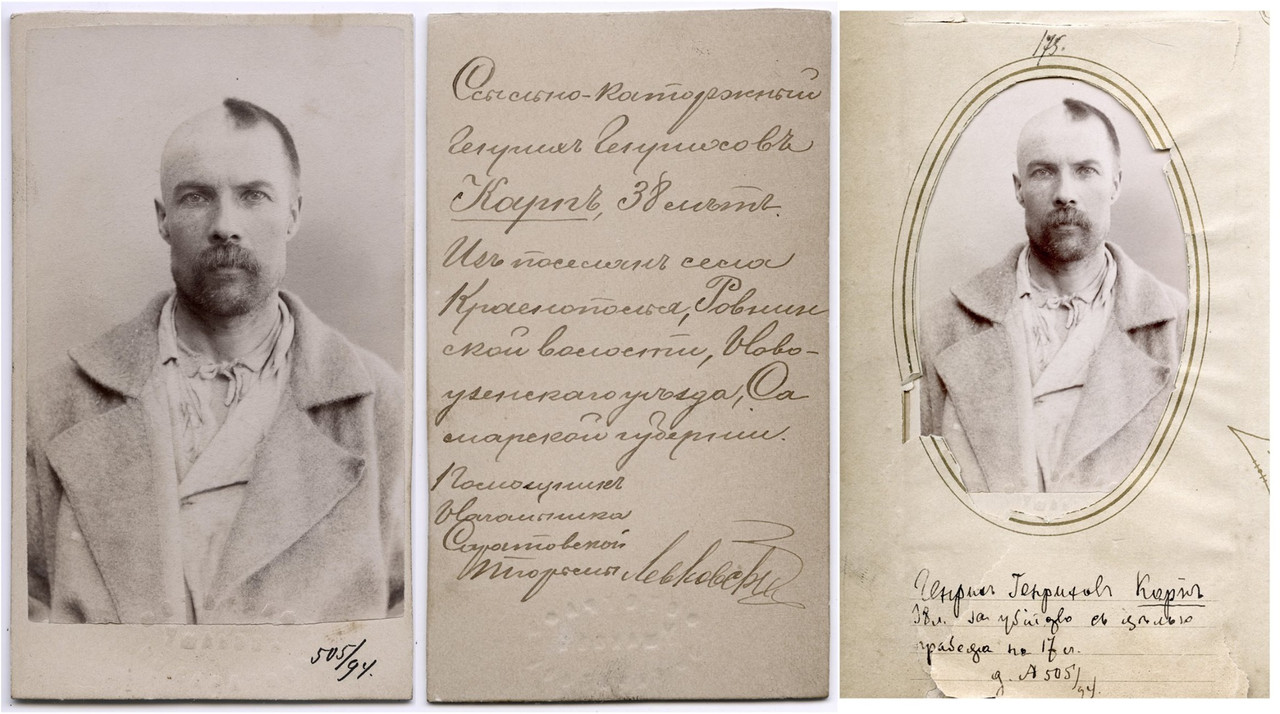 505/94.
Ссыльно-каторжный
Генрихъ Генриховъ
Карпъ, 38 лѣтъ.
Изъ поселянъ села
Краснополья, Ровнин
ской волости, Ново-
узенскаго уѣзда, Са
марской губернии.
Помощникъ
Начальника
Саратовской
Тюрьмы Левковскій
178.
Генрихъ Генриховъ Карпъ
38 л. за убійство съ цѣлью
грабежа на 17 л.
д. № 505/94.